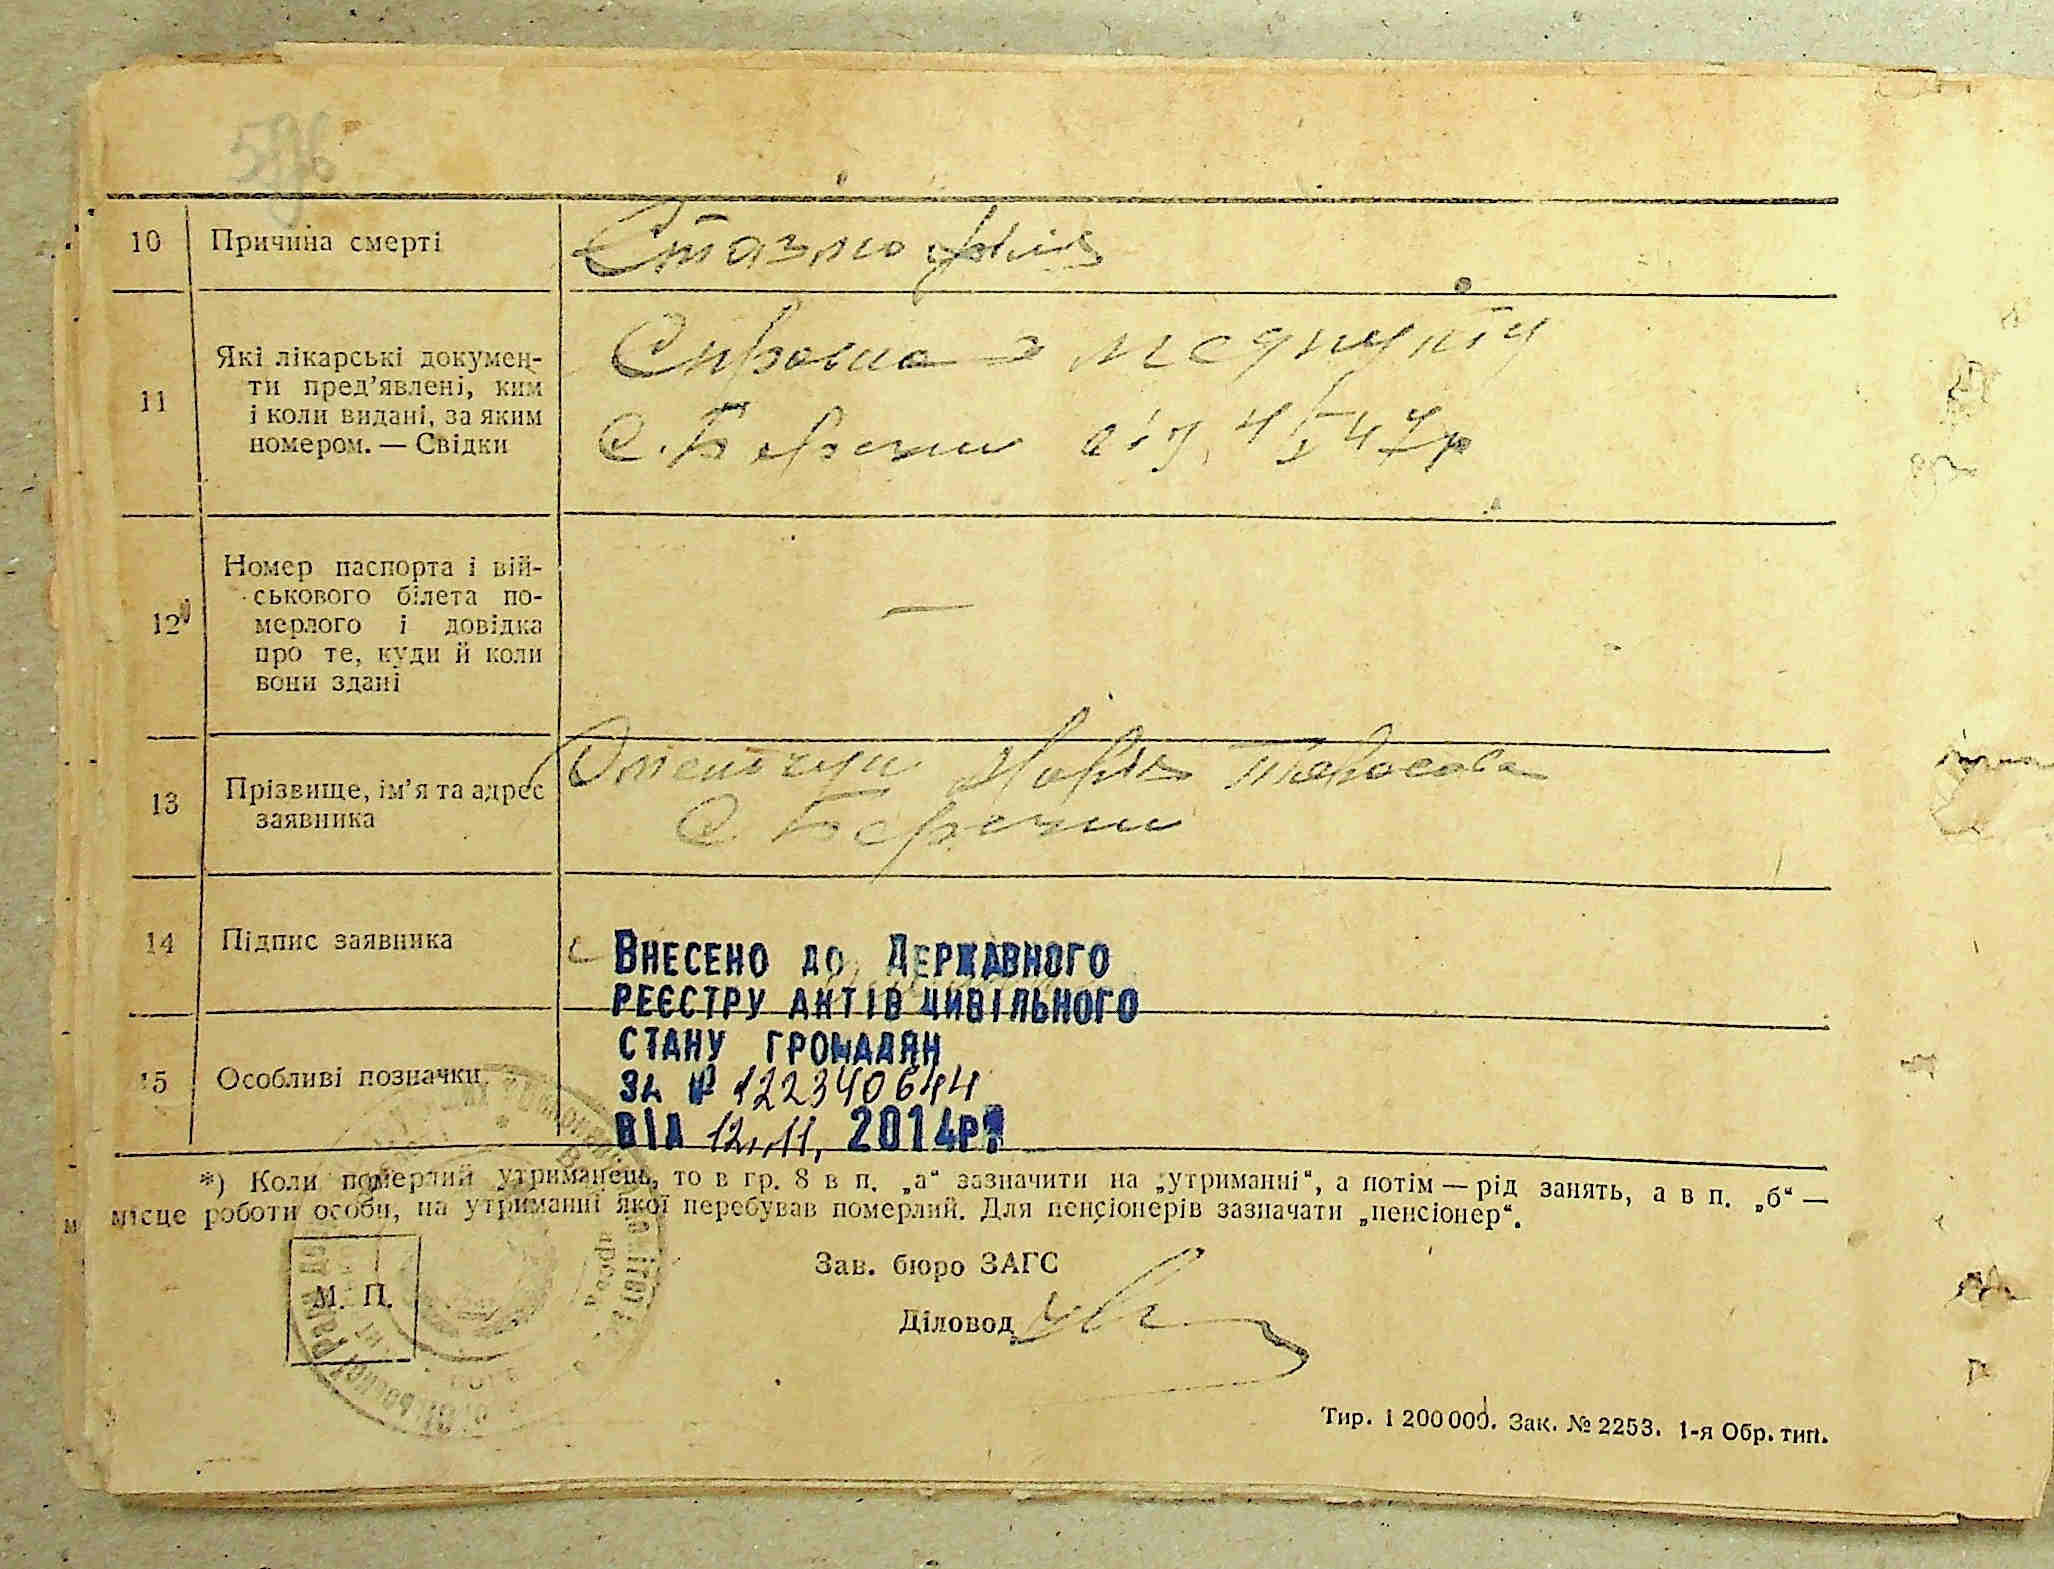 10 Причина смерті
11 Які лікарські докумен-
ти пред’явлені, ким
і коли видані, за яким
номером. — Свідки
з медпункту
с. від 4 V 47 р
12 Номер паспорта і вій-
ськового білета по-
мерлого і довідка
про те, куди й коли
вони здані
—
13 Прізвище, ім’я та адрес
заявника
Марія Тарасовна
с.
14 Підпис заявника
Внесено до Державного
реєстру актів цивільного
стану громадян
15 Особливі позначки
за № 122340644
від 12.11. 2014р.
*) Коли померлий утриманець, то в гр. 8 в п. „а“ зазначити на „утриманні“, а потім — рід занять, а в п. „б“ —
місце роботи особи, на утриманні якої перебував померлий. Для пенсіонерів зазначати „пенсіонер“.
М. П.
Зав. бюро ЗАГС
Діловод
Тир. 1 200 000. Зак. № 2253. 1-я Обр. тип.